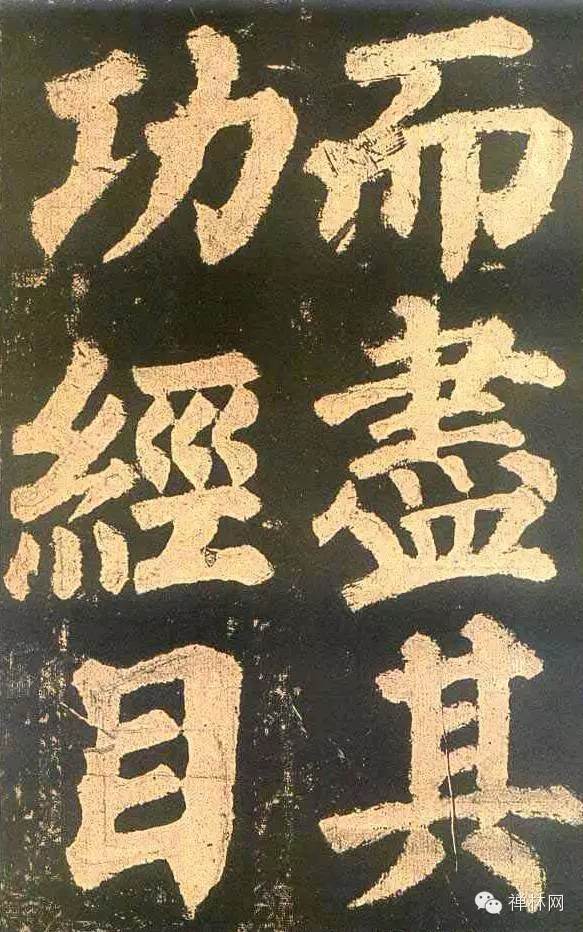 而盡其
功經目
禅林网